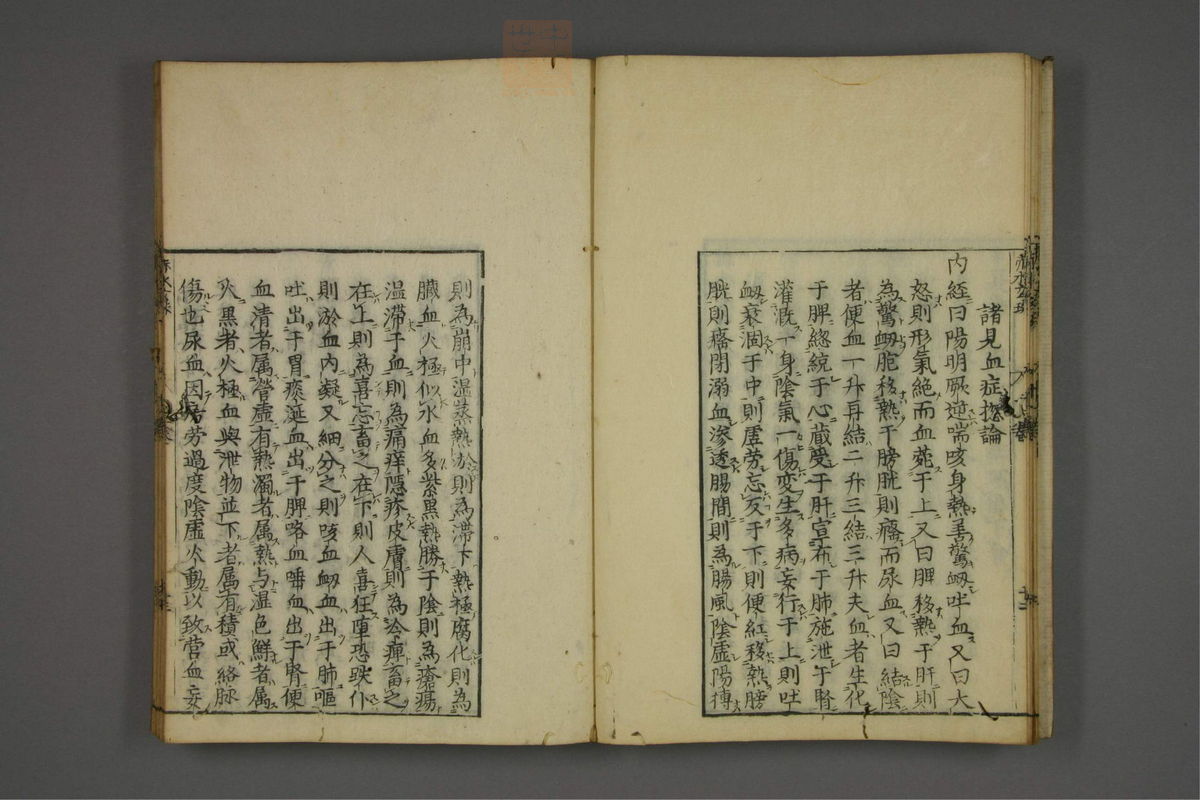 諸見血症摠論
内経曰陽明厥逆喘咳身熱善驚衂吐血又曰大
怒則形氣絶而血菀于上又曰脾移熱于肝則
為驚衂胞移熱于膀胱則癃而尿血又曰結陰
者便血一升再結二升三結三升夫血者生化
于脾総統于心蔵受于肝宣布于肺施泄于腎
灌溉一身陰氣一傷変生多病妄行于上則吐
衂衰涸于中則虚労忘反于下則便紅移熱膀
胱則癃閉溺血滲透腸間則為腸風陰虚陽搏
則為崩中湿蒸熱瘀則為滞下熱極腐化則為
臓血火極似水血多紫黒熱勝于陰則為瘡瘍
湿滞于血則為痛痒隠疹皮膚則為冷痺畜之
在上則為喜忘畜之在下則人喜狂堕恐跌仆
則瘀血内凝又細分之則咳血衂血出于肺嘔
吐出于胃痰涎血出于脾咯血唾血出于腎便
血清者属營虚有熱濁者属熱与湿色鮮者属
火黒者火極血與泄物並下者属有積或絡脉
傷也尿血因房労過度陰虚火動以致営血妄